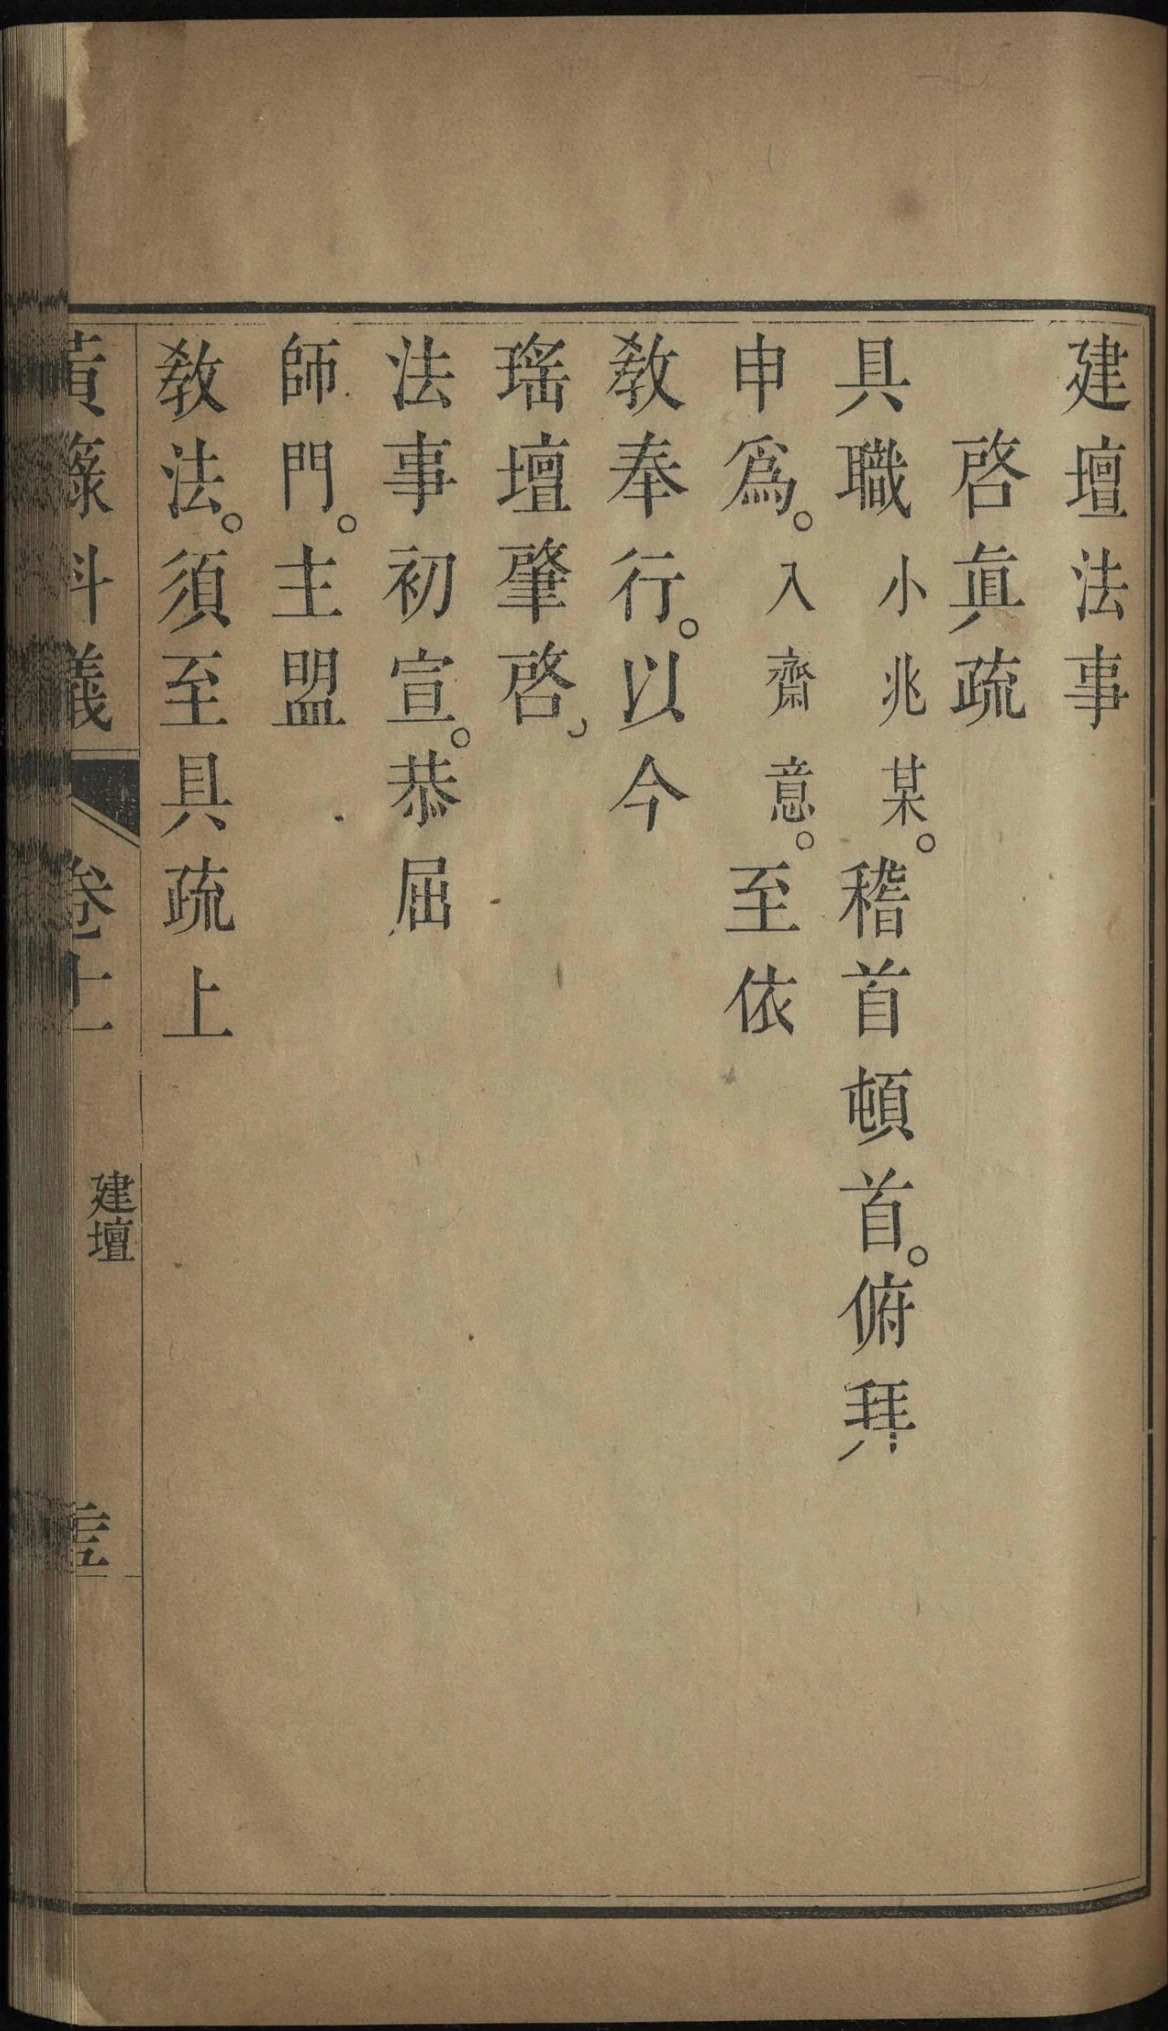 建壇法事
啓眞疏
具職小兆某。稽首頓首。俯拜
申爲。入齋意。至依
教奉行。以今
瑤壇肇啓。
法事初宣。恭屈
師門。主盟
教法。須至具疏上
黃籙科儀 卷十 建壇